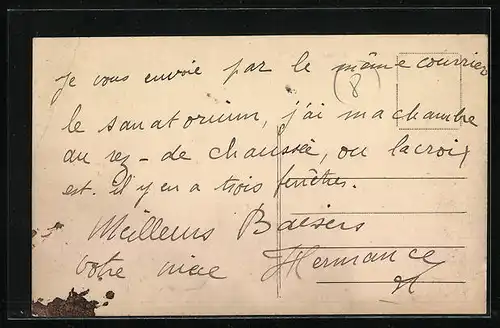 Je vous envoie par le même courrier
(8)
le sanatorium, j'ai ma chambre
au rez-de chaussée, ou lacroix
est. il y en a trois fenêtres.
Meilleurs Baisers
Votre niece Hermance